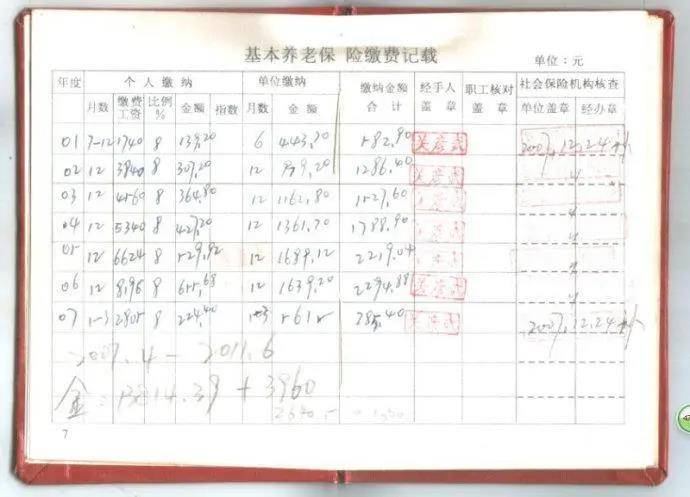 基本养老保 险缴费记载
单位：元
年度 个人缴纳 单位缴纳 缴纳金额合计 经手人盖章 职工核对盖章 社会保险机构核查
月数 缴费工资 比例% 金额 指数 月数 金额 单位盖章 经办章
01 7-12 1740 8 139,20 6 443,70 582,90 吴彦武 2007,12,24补
02 12 3840 8 307,20 12 979,20 1286,40 吴彦武 〃
03 12 4560 8 364,80 12 1162,80 1527,60 〃
04 12 5340 8 427,20 12 1361,70 1788,90 〃
05 12 6624 8 529,92 12 1689,12 2219,04 〃
06 12 8196 8 655,68 12 1639,20 2294,88 〃
07 1-3 2805 8 224,40 1-3 561 785,40 2007,12,24补
2007.4 - 2011.6
金: 13814.39 + 3960
7